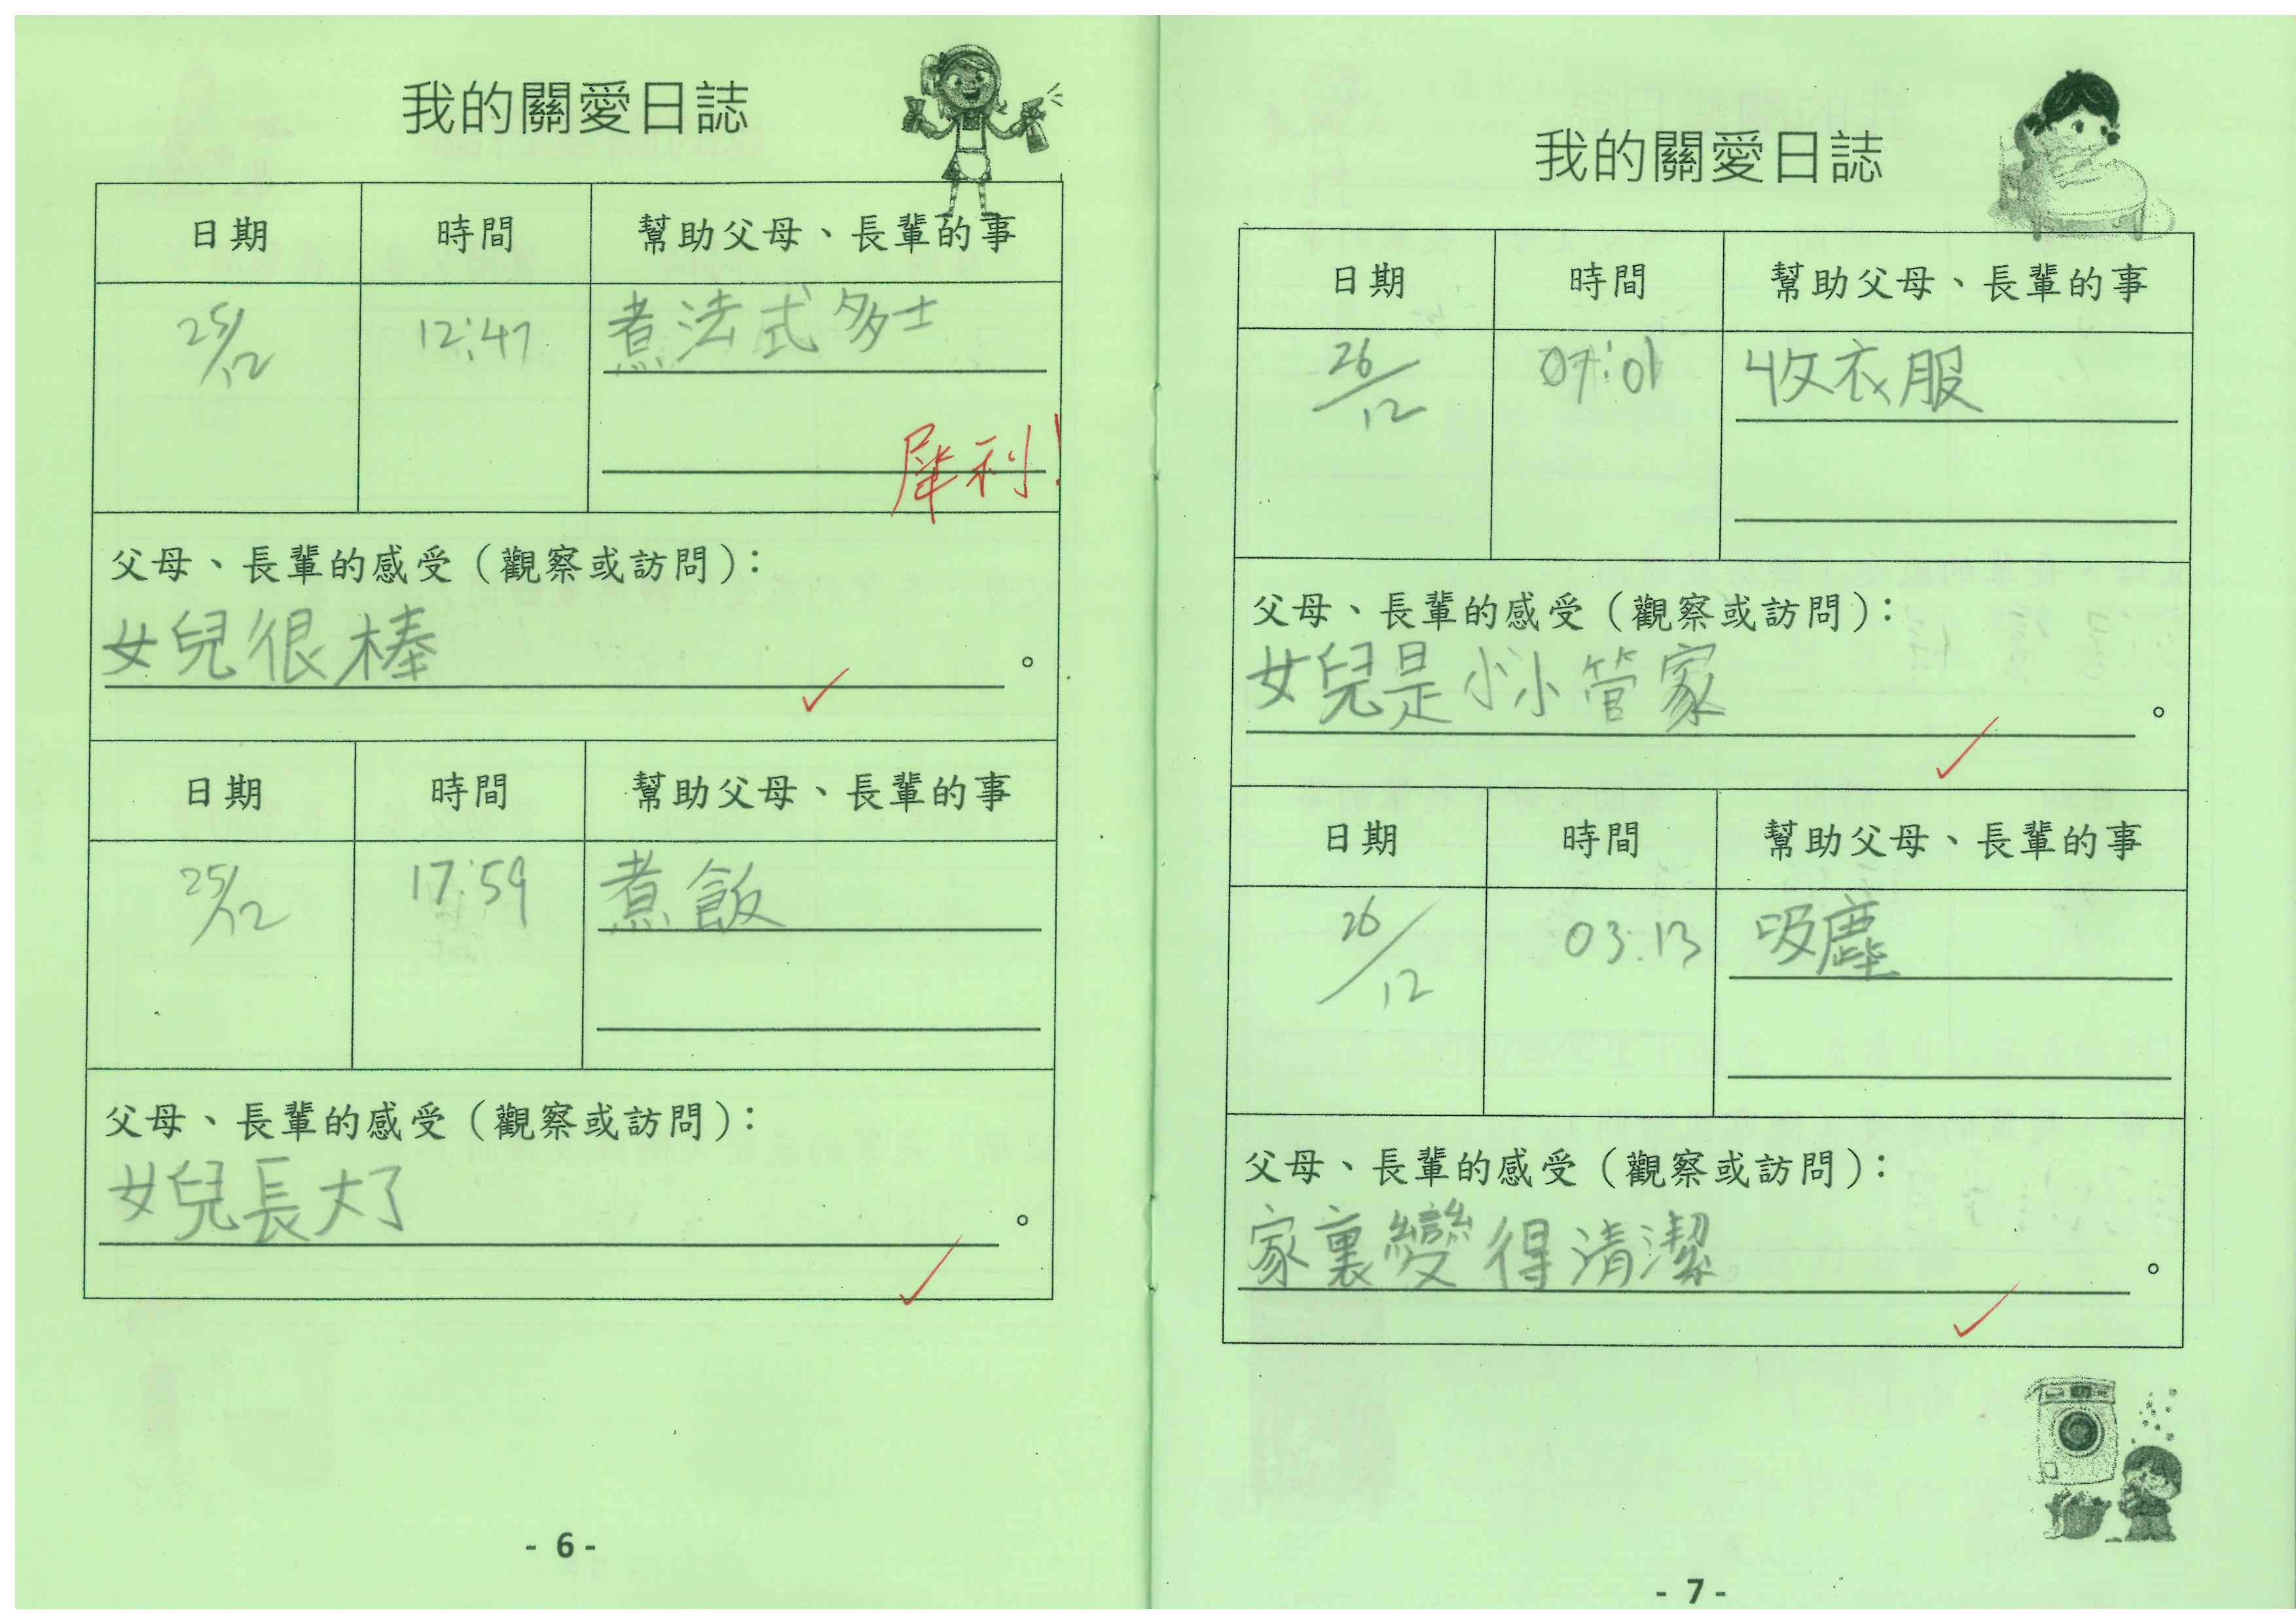 我的關愛日誌
日期 時間 幫助父母、長輩的事
25/12 12:47 煮法式多士
犀利!
父母、長輩的感受(觀察或訪問):
女兒很棒。
日期 時間 幫助父母、長輩的事
25/12 17:59 煮飯
父母、長輩的感受(觀察或訪問):
女兒長大了。
- 6 -
我的關愛日誌
日期 時間 幫助父母、長輩的事
26/12 07:01 收衣服
父母、長輩的感受(觀察或訪問):
女兒是小小管家。
日期 時間 幫助父母、長輩的事
26/12 03:13 吸塵
父母、長輩的感受(觀察或訪問):
家裏變得清潔。
- 7 -